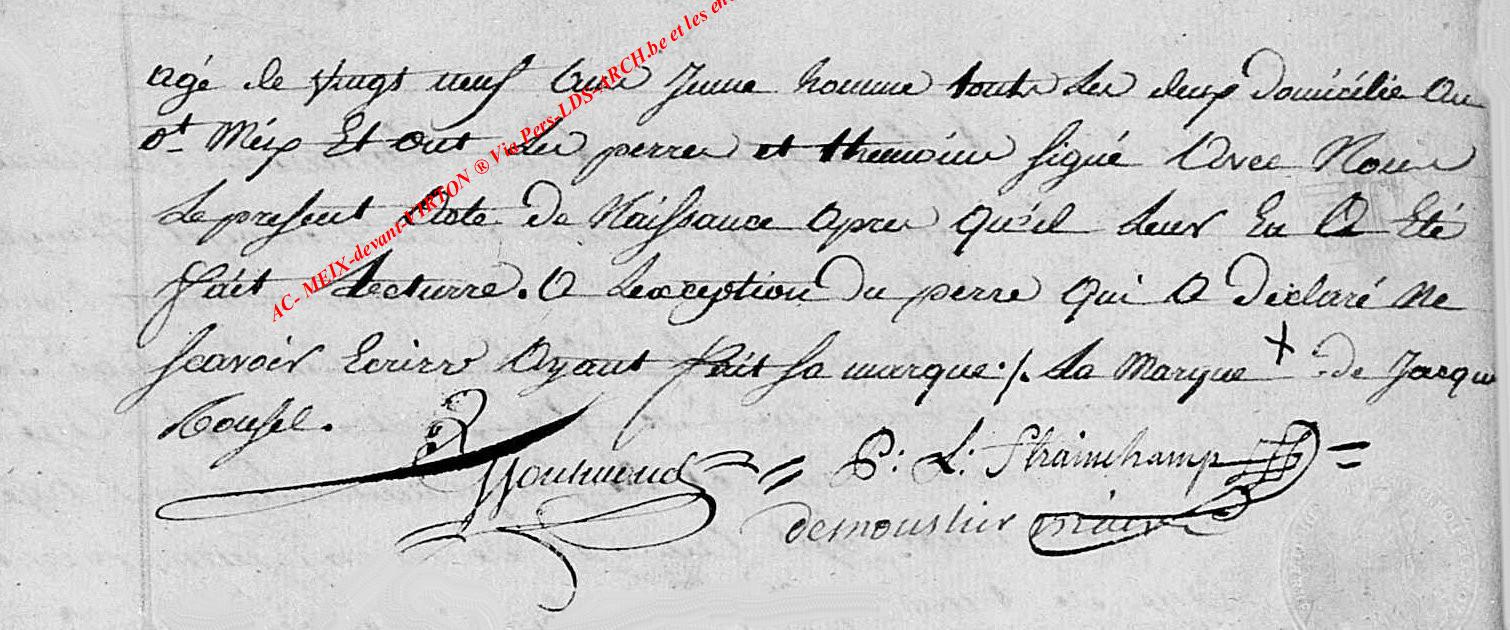 agé de vingt neuf ans Jeune homme touts les deux domicélié au
dt Méix Et ont les perres et themoins signé Avec Nous
Le present Acte de Naissance apres qu'il Leurs En A Eté
fait Lecturre. A Lexception du perre qui A déclaré Ne
scavoir Ecrire Ayant fait sa marque ./. La Marque + de Jacque
Housel.
P: L: Strainchamp
demoustier maire
AC- MEIX-devant-VIRTON ® Via Pers-LDS-ARCH.be et les en